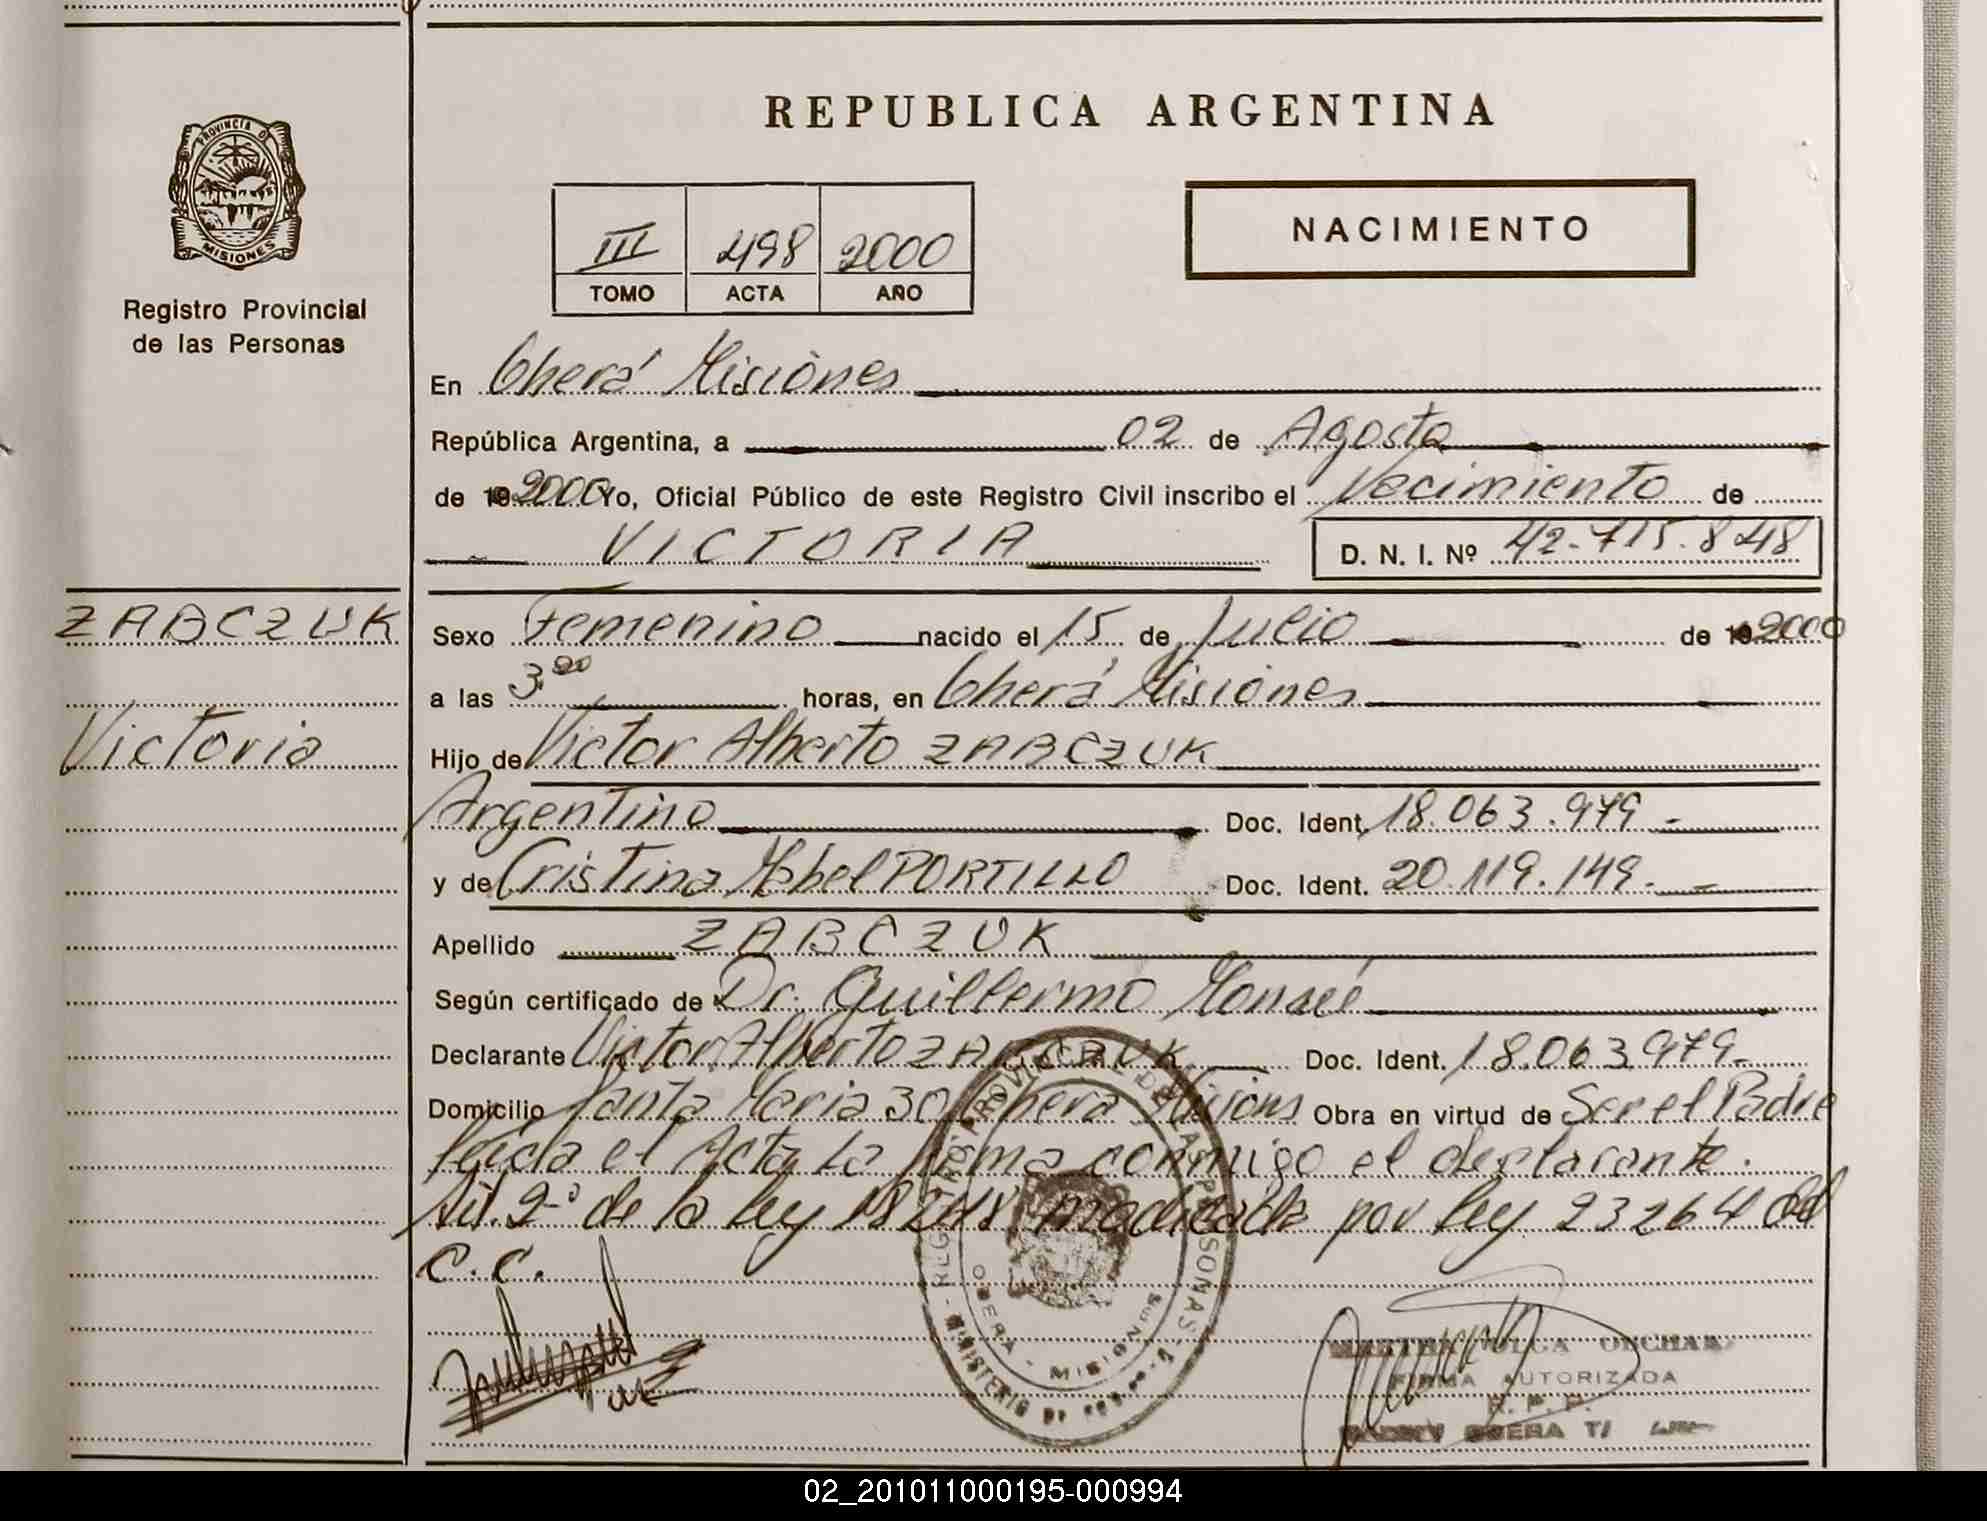 REPUBLICA ARGENTINA
PROVINCIA DE
MISIONES
Registro Provincial
de las Personas
III 498 2000
TOMO ACTA AÑO
NACIMIENTO
En Oberá Misiones
República Argentina, a 02 de Agosto
de 19 2000 Yo, Oficial Público de este Registro Civil inscribo el Nacimiento de
VICTORIA D. N. I. Nº 42.715.848
ZABCZUK
Victoria
Sexo Femenino nacido el 15 de Julio de 19 2000
a las 3 horas, en Oberá Misiones
Hijo de Victor Alberto ZABCZUK
Argentino Doc. Ident. 18.063.979
y de Cristina Mabel PORTILLO Doc. Ident. 20.119.149
Apellido ZABCZUK
Según certificado de Dr. Guillermo
Declarante Victor Alberto ZABCZUK Doc. Ident. 18.063.979
Domicilio Santa Maria 30 Oberá Misions Obra en virtud de Ser el Padre
leída el Acta la firma conmigo el declarante.
Art. 2º de la ley 18248 modificada por ley 23264 del
C.C.
REGISTRO PROVINCIAL DE LAS PERSONAS
OBERA - MISIONES
MINISTERIO DE
MARTHA OLGA
FIRMA AUTORIZADA
R. P. P.
OBERA
02_201011000195-000994